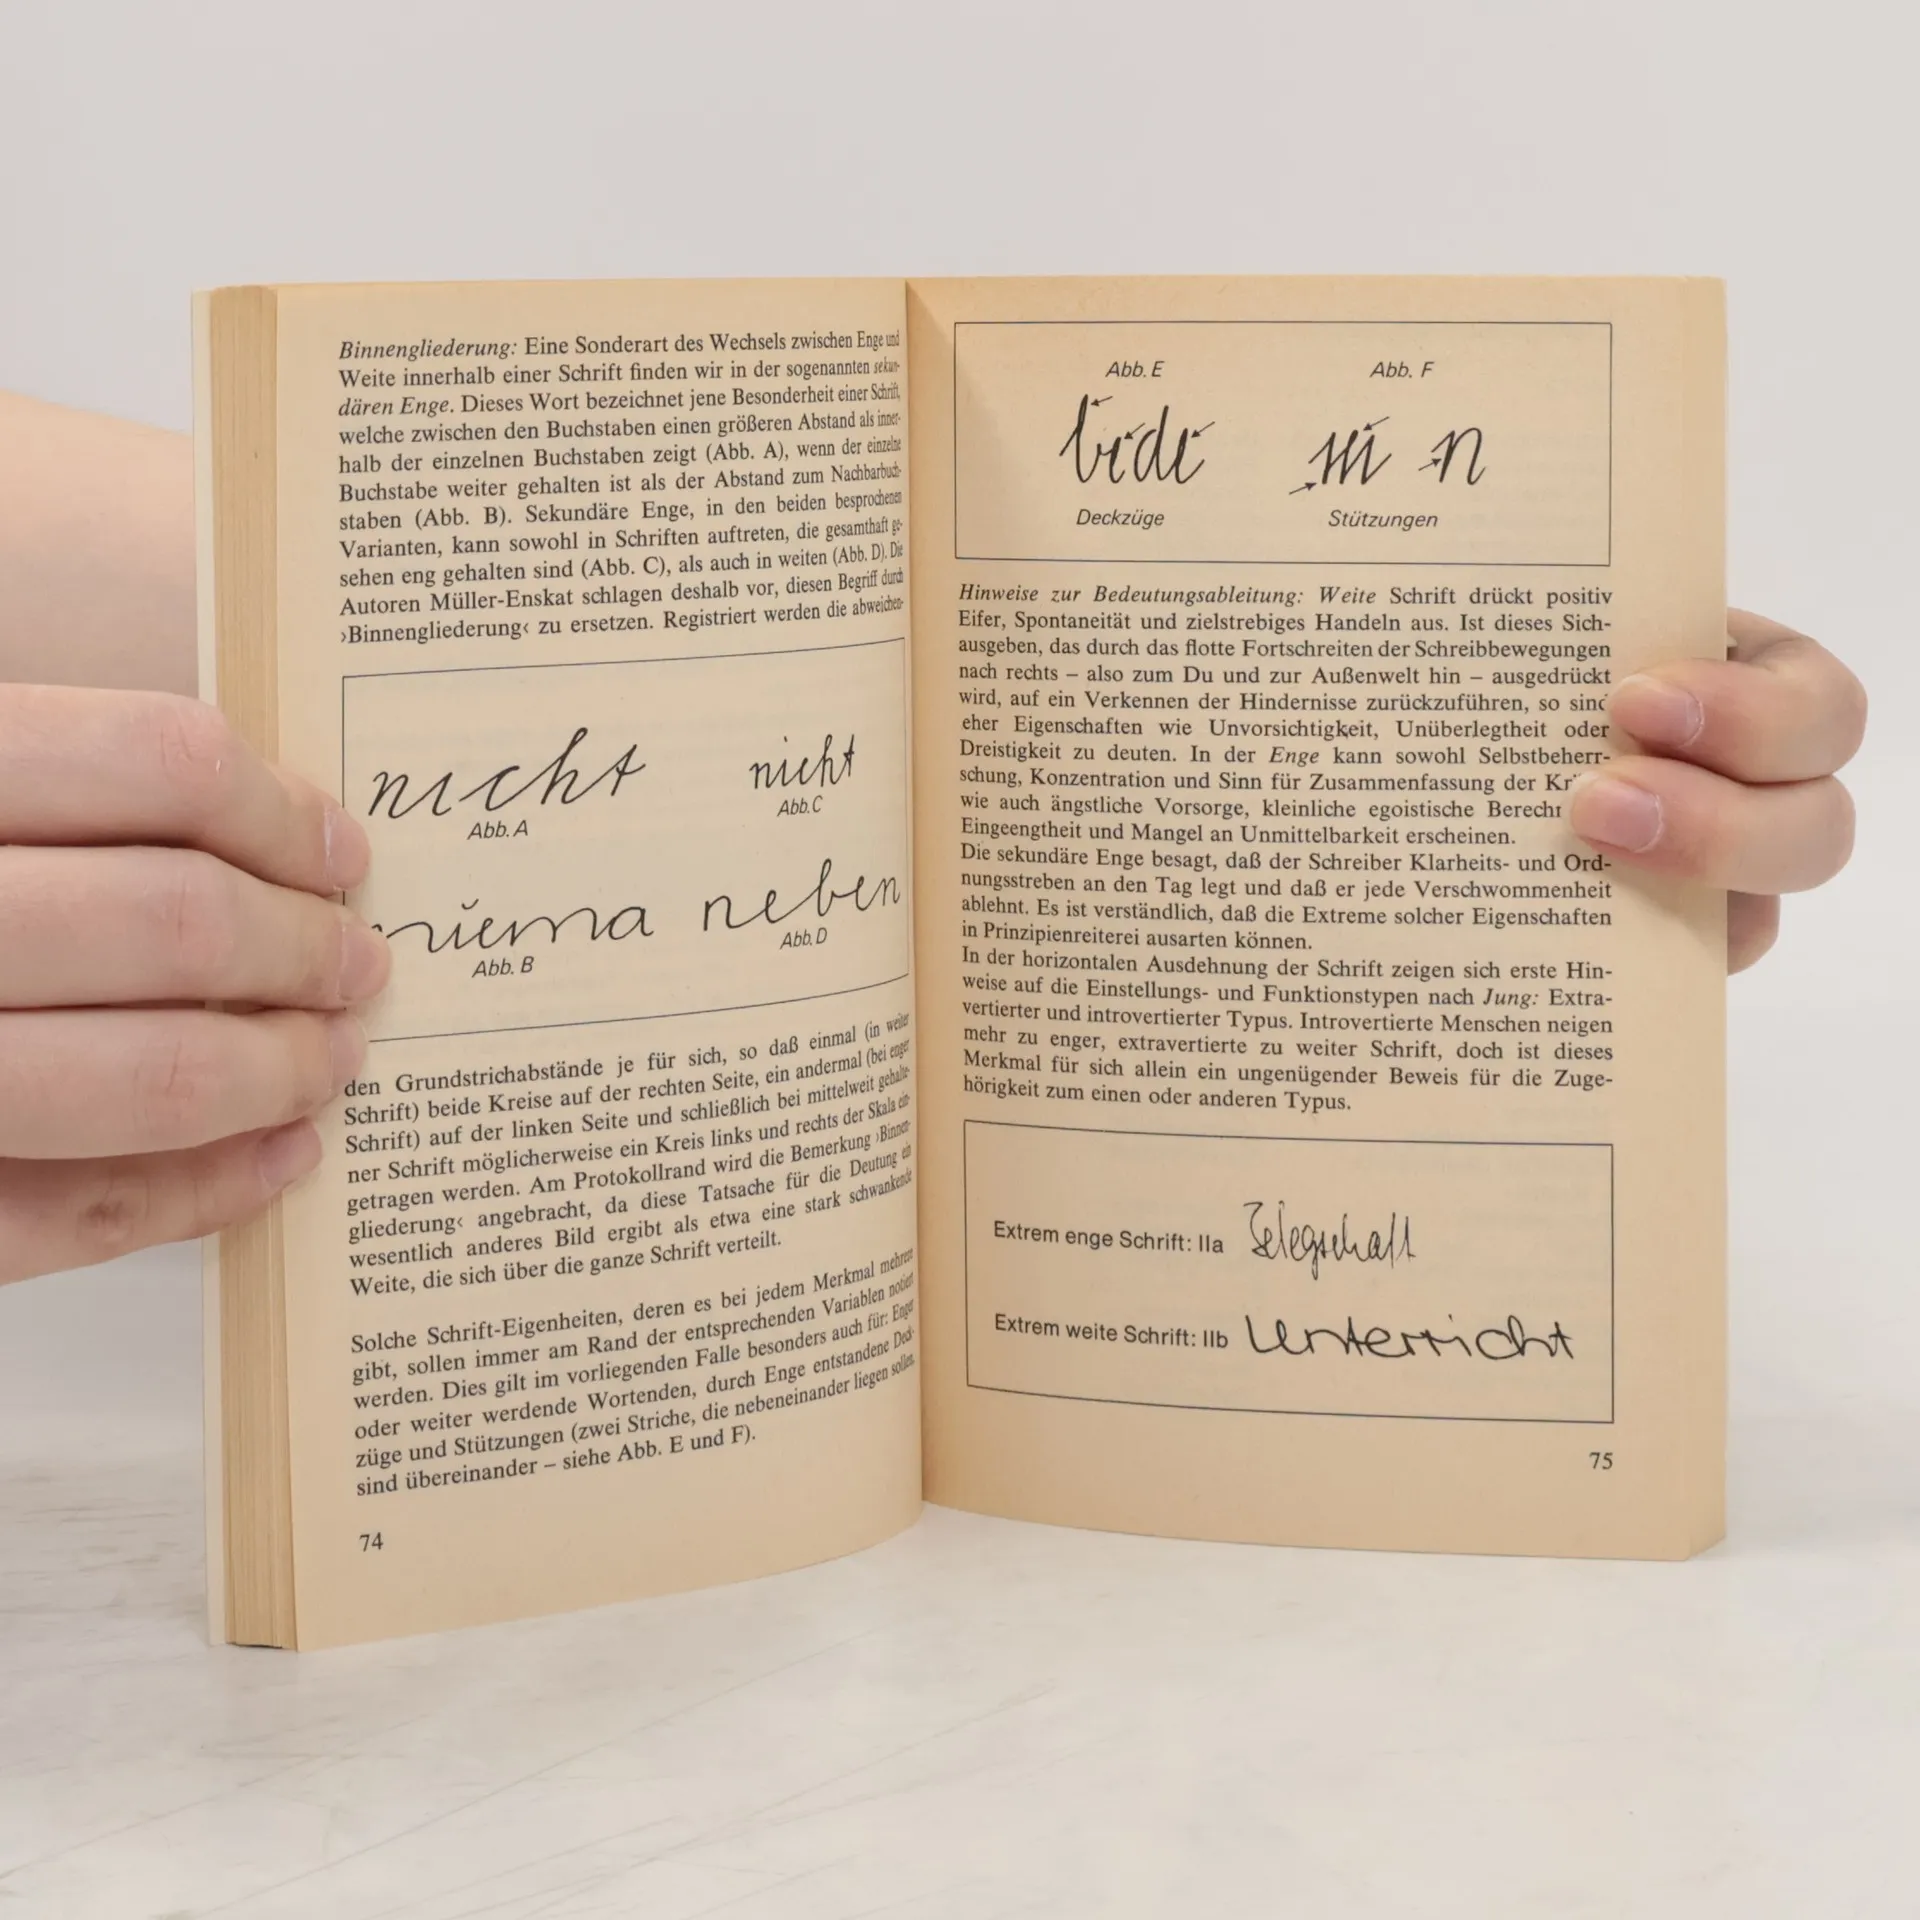 Binnengliederung: Eine Sonderart des Wechsels zwischen Enge und
Weite innerhalb einer Schrift finden wir in der sogenannten sekun-
dären Enge. Dieses Wort bezeichnet jene Besonderheit einer Schrift,
welche zwischen den Buchstaben einen größeren Abstand als inner-
halb der einzelnen Buchstaben zeigt (Abb. A), wenn der einzelne
Buchstabe weiter gehalten ist als der Abstand zum Nachbarbuch-
staben (Abb. B). Sekundäre Enge, in den beiden besprochenen
Varianten, kann sowohl in Schriften auftreten, die gesamthaft ge-
sehen eng gehalten sind (Abb. C), als auch in weiten (Abb. D). Die
Autoren Müller-Enskat schlagen deshalb vor, diesen Begriff durch
›Binnengliederung‹ zu ersetzen. Registriert werden die abweichen-
nicht nicht
Abb. A Abb. C
neben
Abb. B Abb. D
den Grundstrichabstände je für sich, so daß einmal (in weiter
Schrift) beide Kreise auf der rechten Seite, ein andermal (bei enger
Schrift) auf der linken Seite und schließlich bei mittelweit gehalte-
ner Schrift möglicherweise ein Kreis links und rechts der Skala ein-
getragen werden. Am Protokollrand wird die Bemerkung ›Binnen-
gliederung‹ angebracht, da diese Tatsache für die Deutung ein
wesentlich anderes Bild ergibt als etwa eine stark schwankende
Weite, die sich über die ganze Schrift verteilt.
Solche Schrift-Eigenheiten, deren es bei jedem Merkmal mehrere
gibt, sollen immer am Rand der entsprechenden Variablen notiert
werden. Dies gilt im vorliegenden Falle besonders auch für: Enger
oder weiter werdende Wortenden, durch Enge entstandene Deck-
züge und Stützungen (zwei Striche, die nebeneinander liegen sollen,
sind übereinander – siehe Abb. E und F).
74
Abb. E Abb. F
m n
Deckzüge Stützungen
Hinweise zur Bedeutungsableitung: Weite Schrift drückt positiv
Eifer, Spontaneität und zielstrebiges Handeln aus. Ist dieses Sich-
ausgeben, das durch das flotte Fortschreiten der Schreibbewegungen
nach rechts – also zum Du und zur Außenwelt hin – ausgedrückt
wird, auf ein Verkennen der Hindernisse zurückzuführen, so sind
eher Eigenschaften wie Unvorsichtigkeit, Unüberlegtheit oder
Dreistigkeit zu deuten. In der Enge kann sowohl Selbstbeherr-
schung, Konzentration und Sinn für Zusammenfassung der
wie auch ängstliche Vorsorge, kleinliche egoistische
Eingeengtheit und Mangel an Unmittelbarkeit erscheinen.
Die sekundäre Enge besagt, daß der Schreiber Klarheits- und Ord-
nungsstreben an den Tag legt und daß er jede Verschwommenheit
ablehnt. Es ist verständlich, daß die Extreme solcher Eigenschaften
in Prinzipienreiterei ausarten können.
In der horizontalen Ausdehnung der Schrift zeigen sich erste Hin-
weise auf die Einstellungs- und Funktionstypen nach Jung: Extra-
vertierter und introvertierter Typus. Introvertierte Menschen neigen
mehr zu enger, extravertierte zu weiter Schrift, doch ist dieses
Merkmal für sich allein ein ungenügender Beweis für die Zuge-
hörigkeit zum einen oder anderen Typus.
Extrem enge Schrift: IIa
Extrem weite Schrift: IIb Unterricht
75